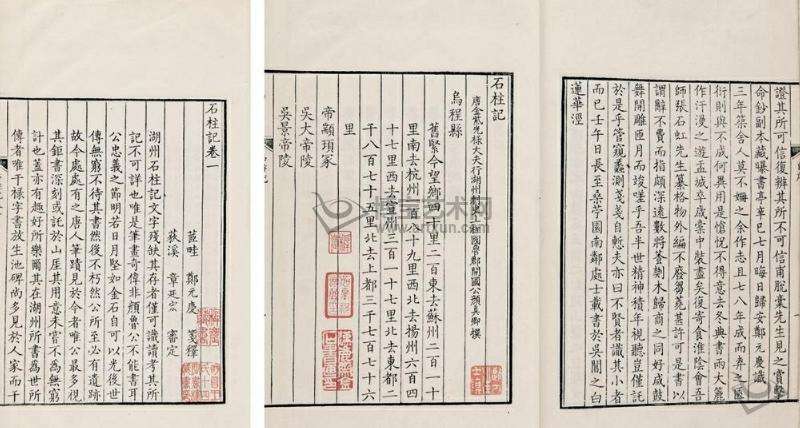 證其所可信復辨其所不可信甫脫稾先生見之賞擊
命鈔副本藏曝書亭辛巳七月晦日歸安鄭元慶識
三年筵舍人莫不姍之余作志且七年成而弃之匧
衍則與不成何異用是愴怳不得意去冬典書兩大簏
作汗漫之遊孟城卒歲槖中裝盡矣復寄食淮陰會吾
師張石虹先生纂格物外編不廢芻蕘甚許可是書以
謂辭不費而指頗深遠數將剞木歸商之同好咸鼓
舞開雕匝月而竣嗟乎吾半世精神積年視聽
於是乎管窺蠡測戔戔自慙夫亦曰不賢者識其小者
而已壬午日長至桑苧園南鄰處士載書於吳閶之白
蓮華涇
石柱記
唐金紫光祿大夫行湖州刺史上柱國魯郡開國公顏真卿撰
烏程縣
舊緊今望鄉四十里二百東去蘇州二百一十
里南去杭州一百十九里西北去揚州六百四
十七里西去宣州三百一十七里北去東都二
千八百七十五里北去上都三千七百七十六
里
帝顓頊冢
吳大帝陵
吳景帝陵
石柱記卷一
苕畦 鄭元慶 箋釋
荻溪 章 審定
湖州石柱記文字殘缺其存者僅可識讀考其所
記不可詳也唯是筆畫奇偉非顏魯公不能書耳
公忠義之節明若日月堅如金石自可以光後世
傳無窮不待其書然後不朽然公所至必有遺跡
故今處處有之唐人筆蹟見於今者唯公最多視
其鉅書深刻或託於山崖其用意未嘗不為無窮
計也蓋亦有趣好所樂爾其在湖州所書為世所
傳者唯干祿字書放生池碑尚多見於人家而干